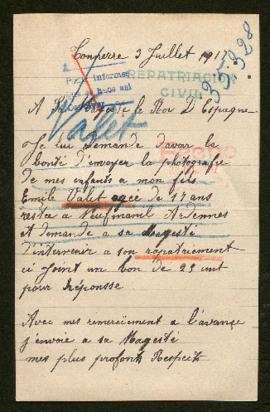 3 Juillet 191
informes
REPATRIACIÓN
CIVIL
35328
A le Roi D'Espagne
Valet
Je lui demande d'avoir la
bonté d'envoyer la photografie
de mes enfants a mon fils
Emile Valet agée de 17 ans
restée a Neufmanil Ardennes
et demande a sa Magesté
d'intervenir a son rapatriement
ci joint un bon de 25
pour Réponsse
Avec mes remerciement a l'avance
j'envoie a sa Magesté
mes plus profonts Respects